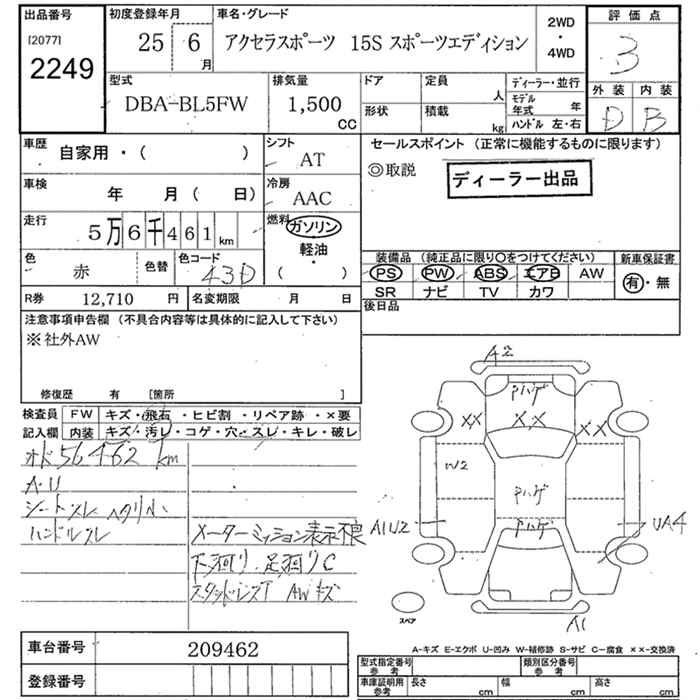 出品番号
[2077]
2249
初度登録年月
25 6 月
車名・グレード
アクセラスポーツ 15S スポーツエディション
2WD
・
4WD
評価点
3
外装 内装
D B
型式
DBA-BL5FW
排気量
1,500
CC
ドア
定員
人
形状
積載
kg
ディーラー・並行
モデル
年式 年
ハンドル 左・右
車歴
自家用・( )
シフト
AT
車検
年 月( 日)
冷房
AAC
走行
5万6千461km
燃料
ガソリン
軽油
・
( )
色
赤
色替
色コード
43D
R券 12,710 円
名変期限 月 日
セールスポイント (正常に機能するものに限ります)
◎取説
ディーラー出品
装備品 (純正品に限り○をつけてください)
新車保証書
PS PW ABS エアB AW
SR ナビ TV カワ
有・無
後日品
注意事項申告欄 (不具合内容等は具体的に記入して下さい)
※社外AW
修復歴 有 [箇所 ]
検査員
記入欄
FW キズ・飛石・ヒビ割・リペア跡・×要
内装 キズ・汚レ・コゲ・穴・スレ・キレ・破レ
オド56462km
A・U
シートスレ ヘタリ小
ハンドルスレ
メーターミッション表示不良
下廻り 足廻りC
スタッドレスT AWキズ
A2
Pハゲ
XX
X,X
XX
W2
Pハゲ
Pハゲ
A1U2
UA4
A1
スペア
A-キズ E-エクボ U-凹み W-補修跡 S-サビ C-腐食 ××-交換済
車台番号 209462
登録番号
型式指定番号
参考
類別区分番号
参考
車庫証明用
参考
長さ cm
幅 cm
高さ cm